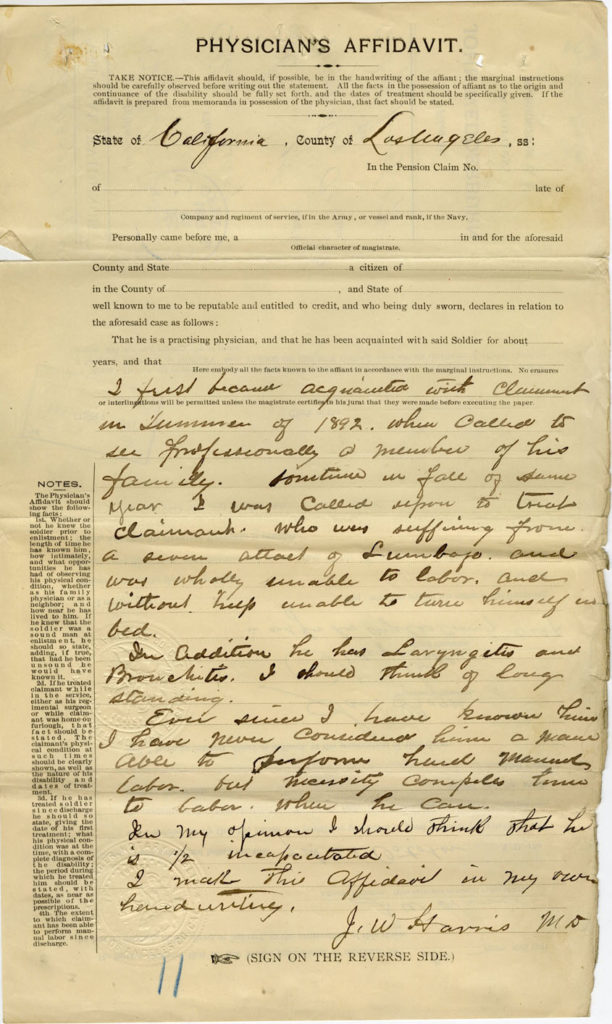 PHYSICIAN'S AFFIDAVIT.
TAKE NOTICE.—This affidavit should, if possible, be in the handwriting of the affiant; the marginal instructions
should be carefully observed before writing out the statement. All the facts in the possession of affiant as to the origin and
continuance of the disability should be fully set forth, and the dates of treatment should be specifically given. If the
affidavit is prepared from memoranda in possession of the physician, that fact should be stated.
State of California, County of Los Angeles, ss:
In the Pension Claim No.
of late of
Company and regiment of service, if in the Army, or vessel and rank, if the Navy.
Personally came before me, a in and for the aforesaid
Official character of magistrate.
County and State a citizen of
in the County of , and State of
well known to me to be reputable and entitled to credit, and who being duly sworn, declares in relation to
the aforesaid case as follows:
That he is a practising physician, and that he has been acquainted with said Soldier for about
years, and that
Here embody all the facts known to the affiant in accordance with the marginal instructions. No erasures
I first became acquainted with Claimant
or interlineations will be permitted unless the magistrate certifies in his jurat that they were made before executing the paper.
in Summer of 1892. when Called to
see professionally a member of his
family. Sometime in fall of same
year I was Called upon to treat
Claimant. who was suffering from
a severe attact of Lumbago. and
was wholly unable to labor. and
without help unable to turn himself in
bed.
In Addition he has Laryngites and
Bronchites. I should think of long
standing.
Ever since I have known him
I have never considered him a man
Able to perform hard manual
labor. but necessity compels him
to labor. when he can.
In my opinion I should think that he
is 1/2 incapacitated
I make this Affidavit in my own
handwriting.
J. W Harris M D
NOTES.
The Physician's
Affidavit should
show the follow-
ing facts:
1st. Whether or
not he knew the
soldier prior to
enlistment; the
length of time he
has known him,
how intimately,
and what oppor-
tunities he has
had of observing
his physical con-
dition, whether
as his family
physician or as a
neighbor; and
how near he has
lived to him. If
he knew that the
soldier was a
sound man at
enlistment, he
should so state,
adding, if true,
that had he been
unsound he
would have
known it.
2d. If he treated
claimant while
in the service,
either as his reg-
imental surgeon
or while claim-
ant was home on
furlough, that
fact should be
stated. The
claimant's physi-
cal condition at
such times
should be clearly
shown, as well as
the nature of his
disability and
dates of treat-
ment.
3d. If he has
treated soldier
since discharge
he should so
state, giving the
date of his first
treatment; what
his physical con-
dition was at the
time, with a com-
plete diagnosis of
the disability;
the period during
which he treated
him should be
stated, with
dates, as near as
possible of the
prescriptions.
4th. The extent
to which claim-
ant has been able
to perform man-
ual labor since
discharge.
(SIGN ON THE REVERSE SIDE.)
11